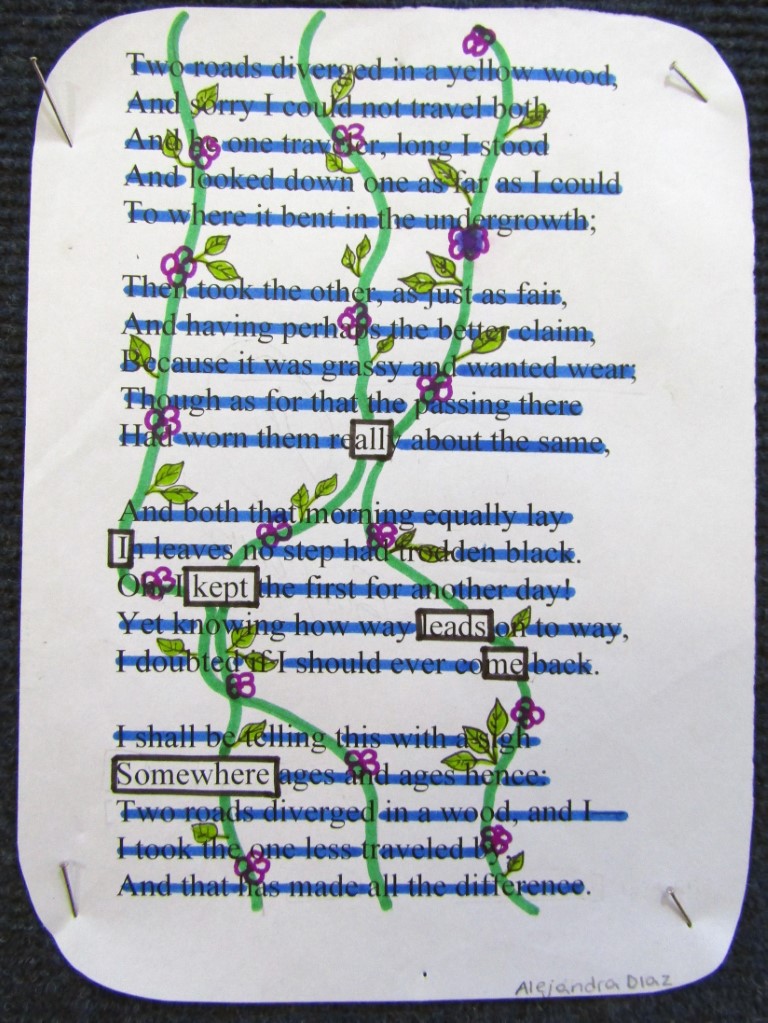 Two roads diverged in a yellow wood,
And sorry I could not travel both
And be one traveler, long I stood
And looked down one as far as I could
To where it bent in the undergrowth;
Then took the other, as just as fair,
And having perhaps the better claim,
Because it was grassy and wanted wear;
Though as for that the passing there
Had worn them really about the same,
And both that morning equally lay
In leaves no step had trodden black.
Oh, I kept the first for another day!
Yet knowing how way leads on to way,
I doubted if I should ever come back.
I shall be telling this with a sigh
Somewhere ages and ages hence:
Two roads diverged in a wood, and I—
I took the one less traveled by,
And that has made all the difference.
Alejandra Diaz